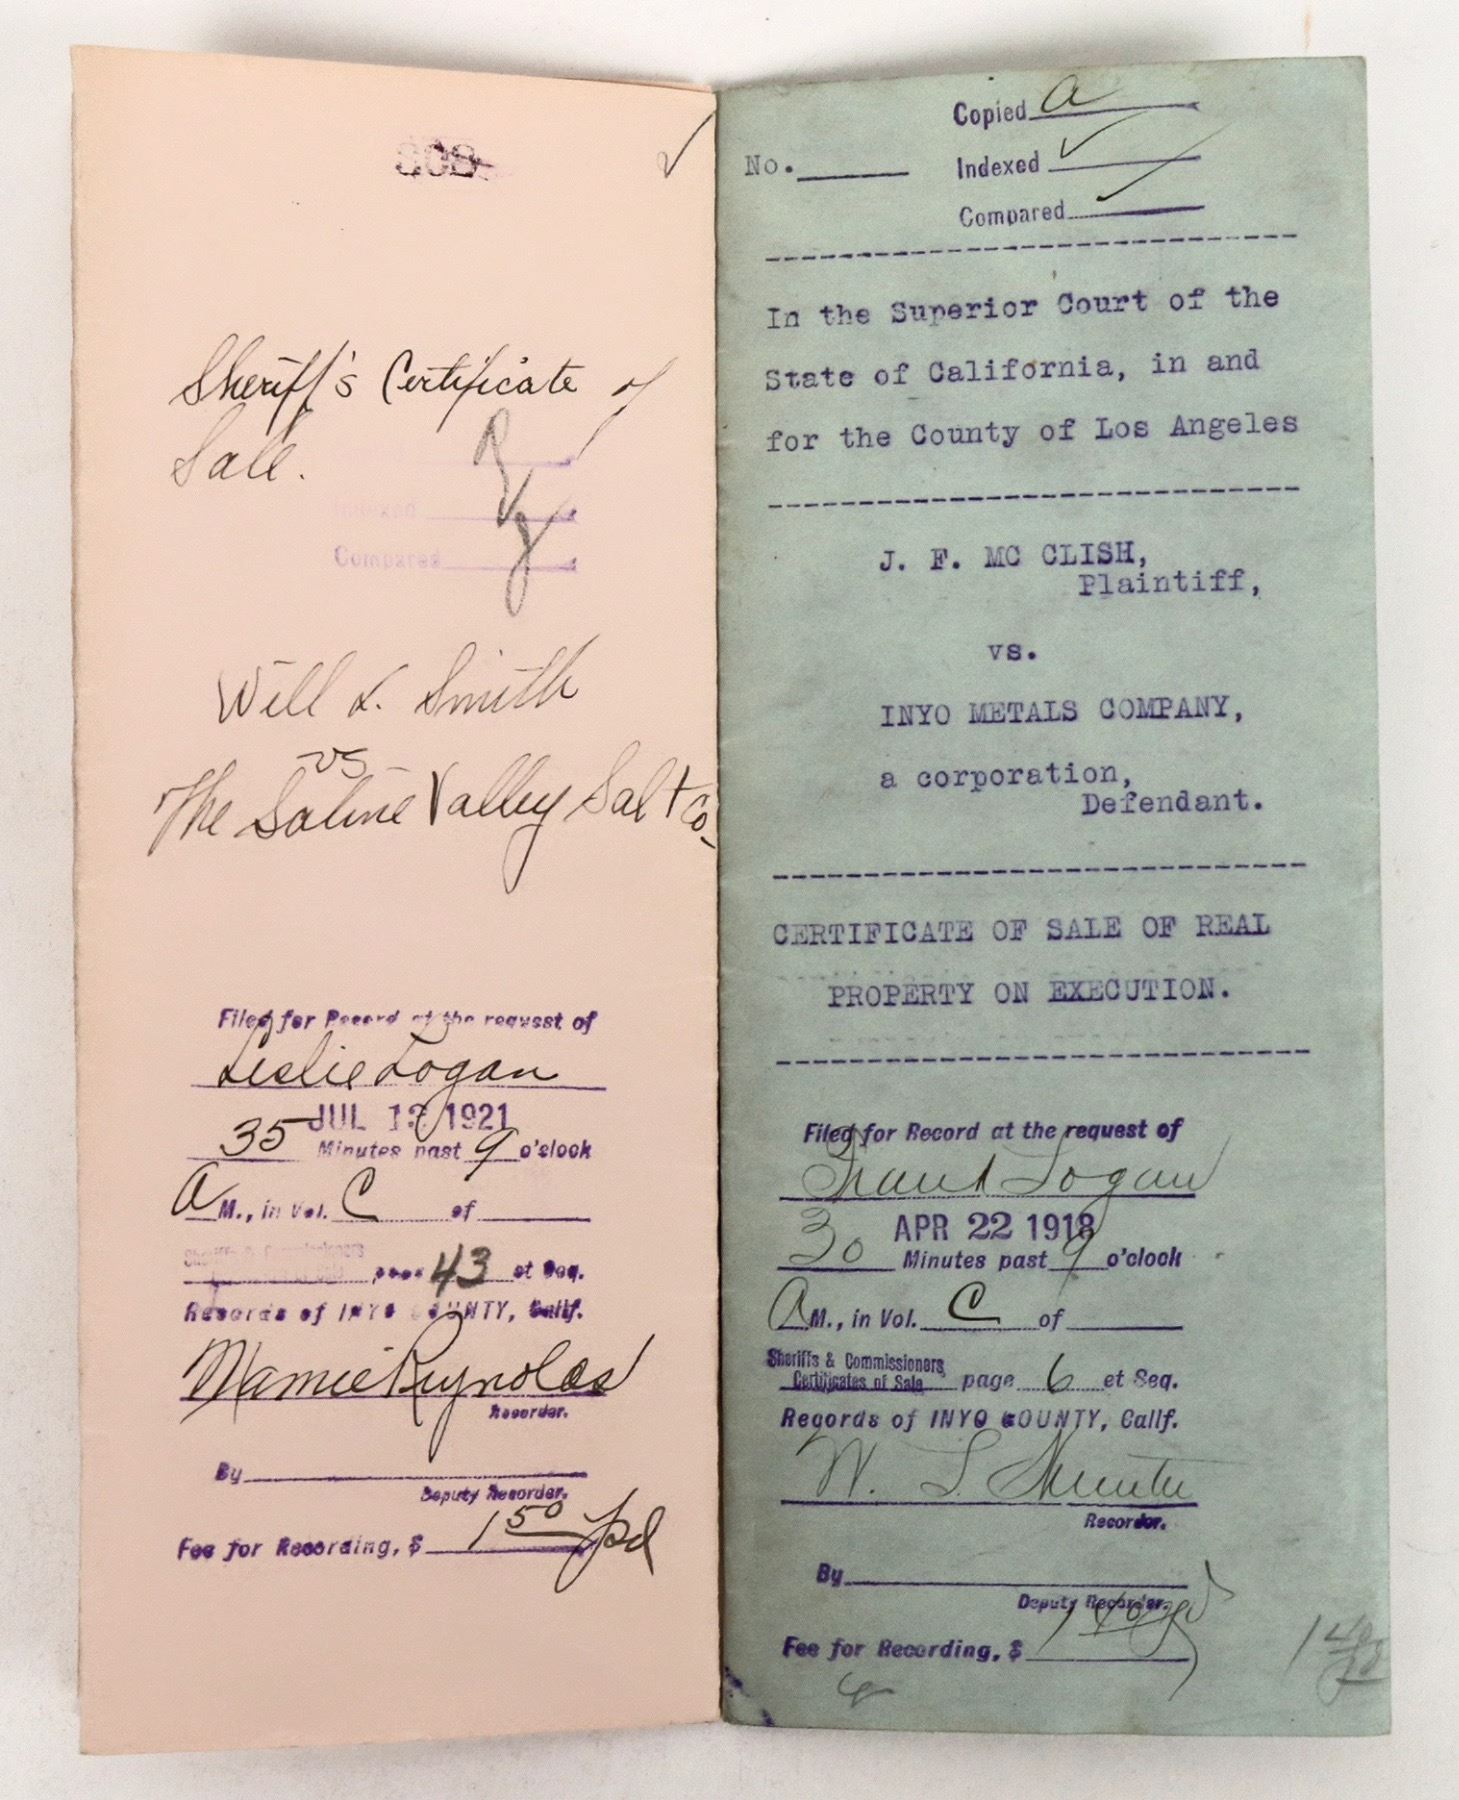 Sheriff's Certificate of
Sale.
Indexed
Compared
Will L. Smith
-vs-
The Saline Valley Salt Co.
Filed for Record at the request of
Leslie Logan
JUL 13 1921
35 Minutes past 9 o'clock
A M., in Vol. C of
Sheriffs & Commissioners
page 43 et Seq.
Records of INYO COUNTY, Calif.
Mamie Reynolds
Recorder.
By
Deputy Recorder.
Fee for Recording, $ 1 50 pd
Copied a
No.
Indexed ✓
Compared
In the Superior Court of the
State of California, in and
for the County of Los Angeles
J. F. MC CLISH,
Plaintiff,
vs.
INYO METALS COMPANY,
a corporation,
Defendant.
CERTIFICATE OF SALE OF REAL
PROPERTY ON EXECUTION.
Filed for Record at the request of
Frank Logan
APR 22 1918
30 Minutes past 9 o'clock
A M., in Vol. C of
Sheriffs & Commissioners
Certificates of Sale page 6 et Seq.
Records of INYO COUNTY, Calif.
W. L. Hunter
Recorder.
By
Deputy Recorder.
Fee for Recording, $ 1 40
1 40